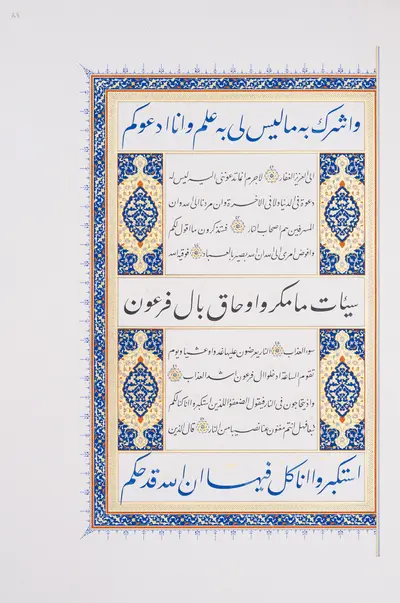 واشرك به ما ليس لي به علم وانا ادعوكم
الى العزيز الغفار لاجرم انما تدعونني اليه ليس له
دعوة في الدنيا ولا في الاخرة وان مردنا الى الله وان
المسرفين هم اصحاب النار فستذكرون ما اقول لكم
وافوض امري الى الله ان الله بصير بالعباد فوقيه الله
سيئات ما مكروا وحاق بال فرعون
سوء العذاب النار يعرضون عليها غدوا وعشيا ويوم
تقوم الساعة ادخلوا ال فرعون اشد العذاب
واذ يتحاجون في النار فيقول الضعفؤا للذين استكبروا انا كنا لكم
تبعا فهل انتم مغنون عنا نصيبا من النار قال الذين
استكبروا انا كل فيها ان الله قد حكم